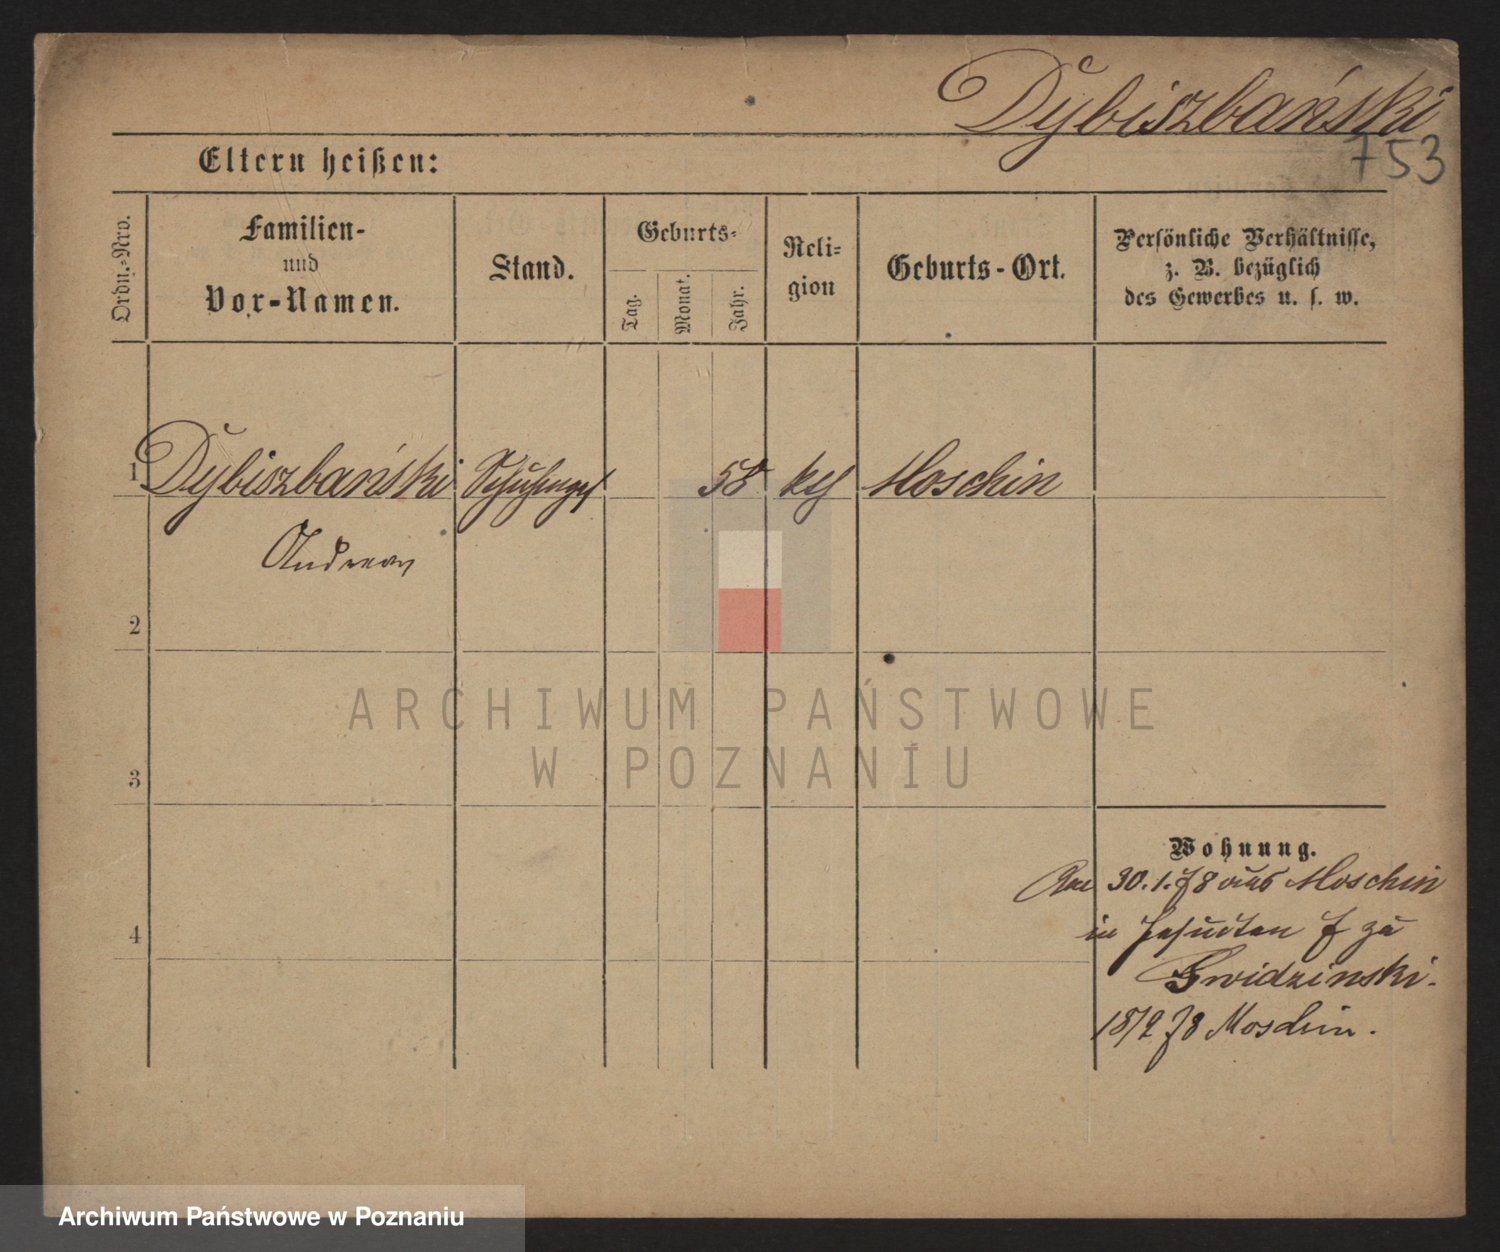 Dybiszbański
753
Eltern heißen:
Ordn.-Nro.
Familien-
und
Vor-Namen.
Stand.
Geburts-
Tag.
Monat.
Jahr.
Reli-
gion
Geburts-Ort.
Persönliche Verhältnisse,
z. B. bezüglich
des Gewerbes u. s. w.
1 Dybiszbański Schuhmges 58 kth Moschin
Andreas
2
3
4
Wohnung.
30.1.78 aus Moschin
in Jesuiten zu
Gwidzinski.
18/2 78 Moschin.
ARCHIWUM PAŃSTWOWE
W POZNANIU
Archiwum Państwowe w Poznaniu